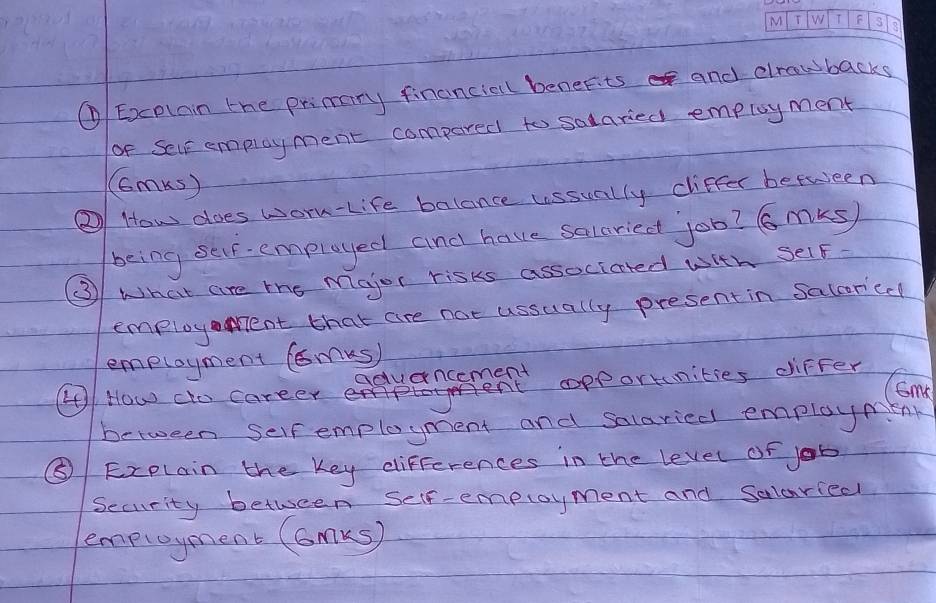 M T W T F S S
① Explain the primary financial benefits and drawbacks
of self employment compared to salaried employment
(6mks)
② How does work-life balance ussually differ between
being self-employed and have salaried job? (6 mks)
③ What are the major risks associated with self-
employment that are not ussually present in salaried
employment (6mks)
④ How do career advancement opportunities differ (6mk
between self employment and salaried employment
⑤ Explain the key differences in the level of job
security between self-employment and salaried
employment (6mks)